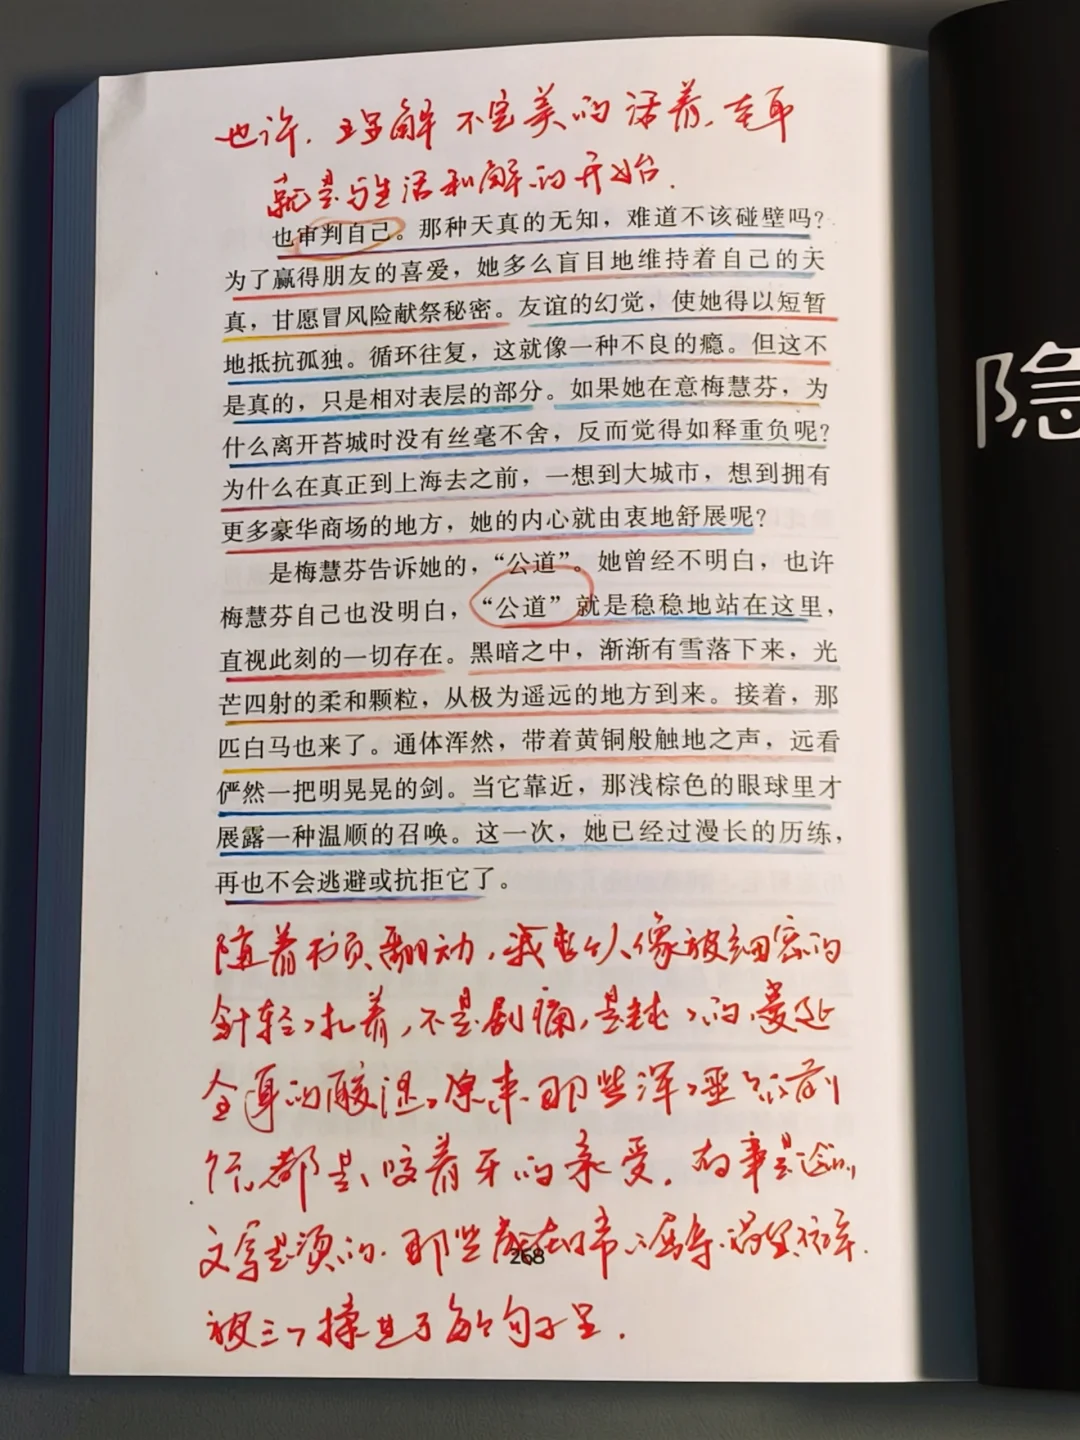 也许，理解不完美的活着，本身
就是与生活和解的开始．
也审判自己。那种天真的无知，难道不该碰壁吗？
为了赢得朋友的喜爱，她多么盲目地维持着自己的天
真，甘愿冒风险献祭秘密。友谊的幻觉，使她得以短暂
地抵抗孤独。循环往复，这就像一种不良的瘾。但这不
是真的，只是相对表层的部分。如果她在意梅慧芬，为
什么离开苔城时没有丝毫不舍，反而觉得如释重负呢？
为什么在真正到上海去之前，一想到大城市，想到拥有
更多豪华商场的地方，她的内心就由衷地舒展呢？
是梅慧芬告诉她的，“公道”。她曾经不明白，也许
梅慧芬自己也没明白，“公道”就是稳稳地站在这里，
直视此刻的一切存在。黑暗之中，渐渐有雪落下来，光
芒四射的柔和颗粒，从极为遥远的地方到来。接着，那
匹白马也来了。通体浑然，带着黄铜般触地之声，远看
俨然一把明晃晃的剑。当它靠近，那浅棕色的眼球里才
展露一种温顺的召唤。这一次，她已经过漫长的历练，
再也不会逃避或抗拒它了。
随着书页翻动，我整个人像被细密的
针轻轻扎着，不是剧痛，是 的蔓延
全身的酸涩。原来那些浑浑噩噩的前
行，都是咬着牙的承受．故事是
文字是 的．那些 日常
被 揉进了每个句子里．
268
隐